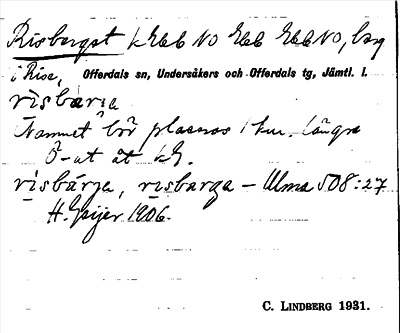 Risberget kEbb NO Ebb EbbNO, berg
i Rise, Offerdals sn, Undersåkers och Offerdals tg, Jämtl. l.
risbärja
Namnet bör placeras 1 km. längre
Ö-ut åt
risbärja, risbarga – Ulma 508:27
H. Geijer 1906.
C. LINDBERG 1931.